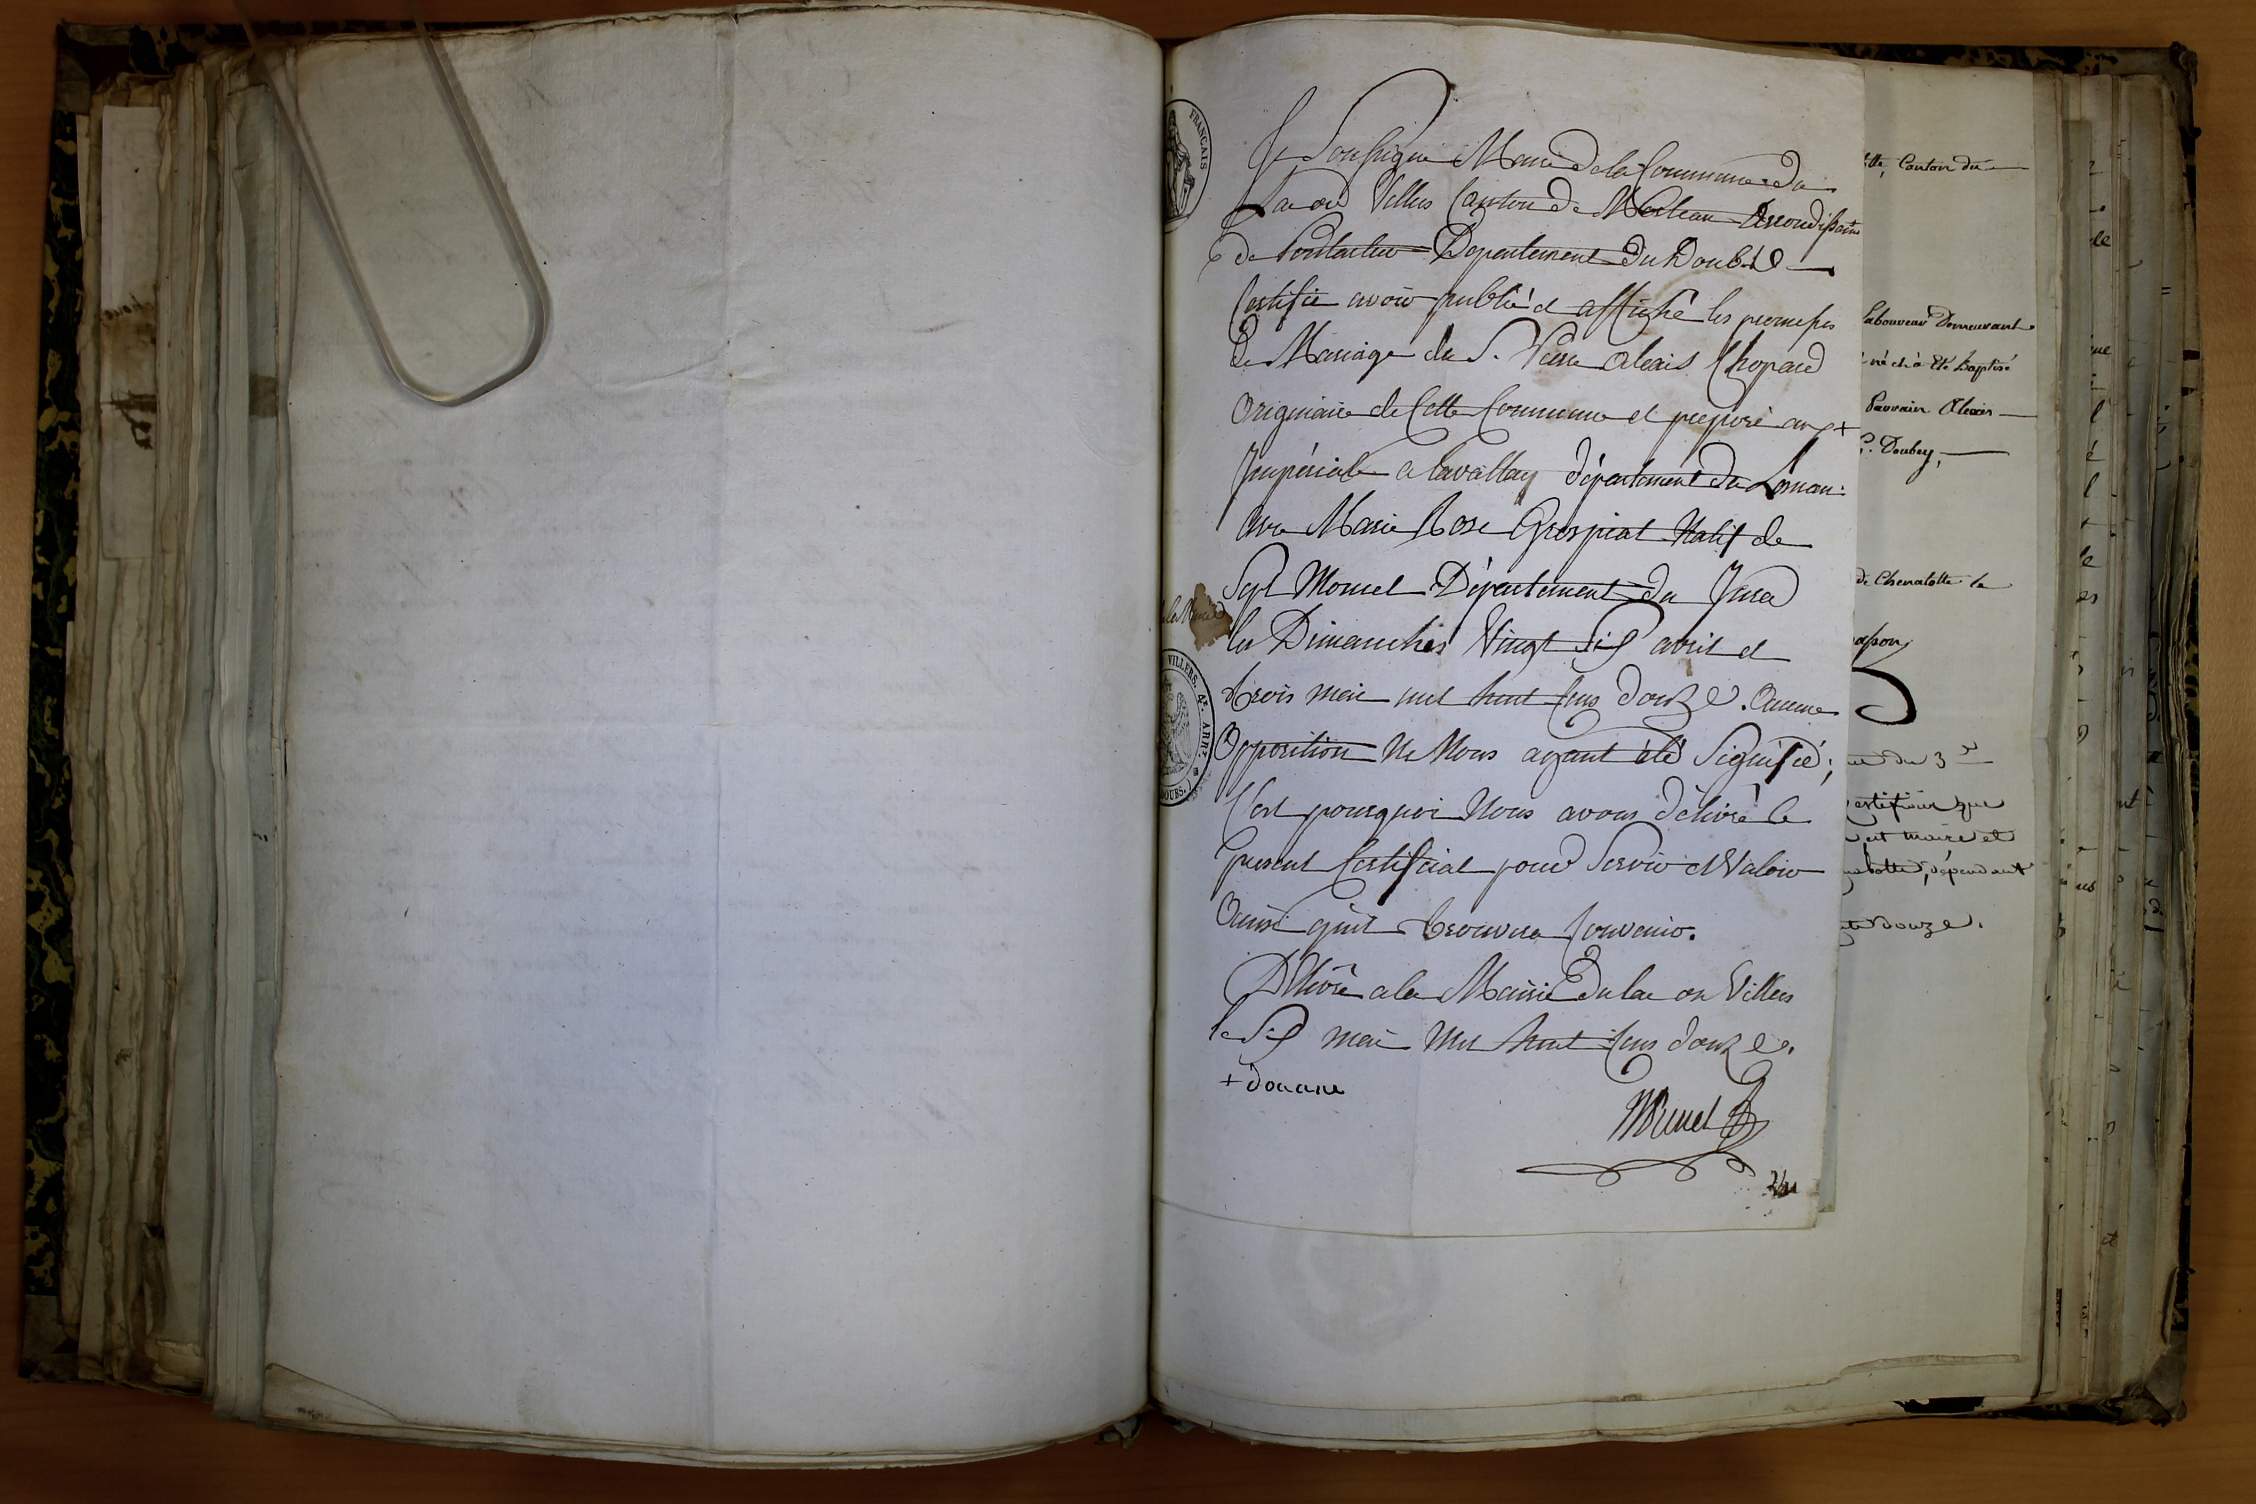 FRANÇAIS
Je Soussigné Maire de la Commune du
Lac ou Villers Canton de Morteau Arrondissemt
de Pontarlier Departement du Doubs
Certifie avoir publié et affiché les promesses
De Mariage de S. Pierre alexis Chopard
Originaire de Cette Commune et préposé aux +
Impériale a Lavattay département du Léman
avec Marie Rose Grospiat Natif de
Sept Moncel Département du Jura
les Dimanches Vingt Six avril et
trois mai mil huit Cens douze. Aucune
Opposition Ne Nous ayant été Signifié ;
C'est pourquoi Nous avons délivré le
present Certificat pour Servir et Valoir
Ainsi qu'il trouvera Convenir.
Délivré a la Mairie du lac ou Villers
le Six mai Mil huit Cens douze.
+ douane
VILLERS. 4e. ARR.
DOUBS.
Canton du
Laboureur Demeurant
né et à été Baptisé
Parrain Alexis
Doubey,
de Chenalotte le
du 3e
certifions que
est maire et
dépendant
douze.